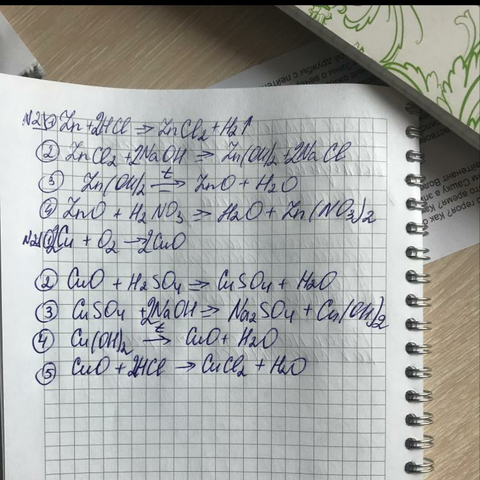 N2 ① Zn + 2HCl ⇒ ZnCl₂ + H₂↑
② ZnCl₂ + 2NaOH ⇒ Zn(OH)₂ + 2NaCl
③ Zn(OH)₂ →t ZnO + H₂O
④ ZnO + H₂NO₃ ⇒ H₂O + Zn(NO₃)₂
① 2Cu + O₂ → 2CuO
② CuO + H₂SO₄ ⇒ CuSO₄ + H₂O
③ CuSO₄ + 2NaOH ⇒ Na₂SO₄ + Cu(OH)₂
④ Cu(OH)₂ →t CuO + H₂O
⑤ CuO + 2HCl → CuCl₂ + H₂O